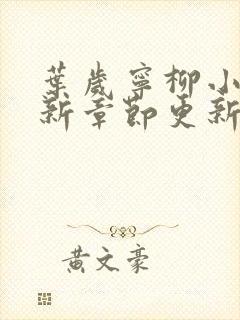 葉歲寧柳小
新章節更新
黃文豪